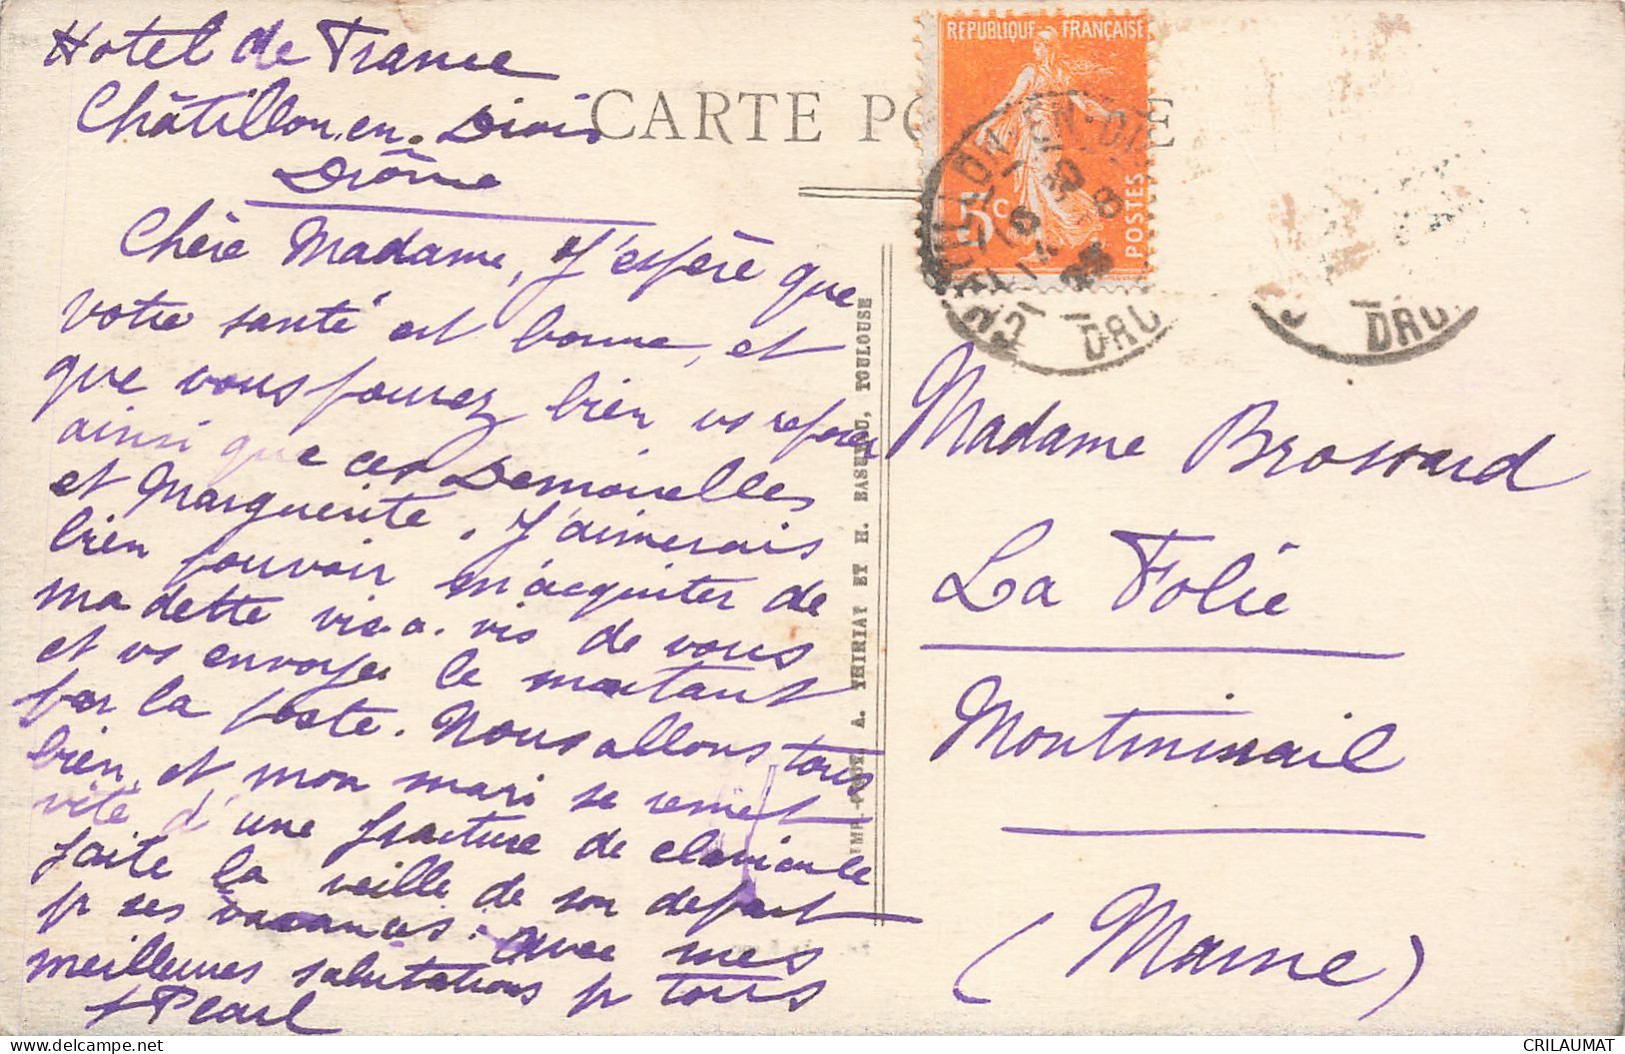 Hotel de France
Châtillon.en.Diois
Drôme
CARTE PO E
REPUBLIQUE FRANÇAISE
5c
POSTES
Chère Madame, J'espère que
votre santé est bonne, et
que vous pouvez bien vs reposer
ainsi que ces Demoiselles
et Marguerite. J'aimerais
bien pouvoir m'acquiter de
ma dette vis.a.vis de vous
et vs envoyer le montant
par la poste. Nous allons tous
bien, et mon mari se remet
vite d'une fracture de clavicule
faite la veille de son depart
pr ses vacances. Avec mes
meilleures salutations pr tous
Pearl
IMP.-PHOT. A. THIRIAT ET H. BASUYAU, TOULOUSE
Madame Brossard
La Folie
Montmirail
(Marne)
CRILAUMAT